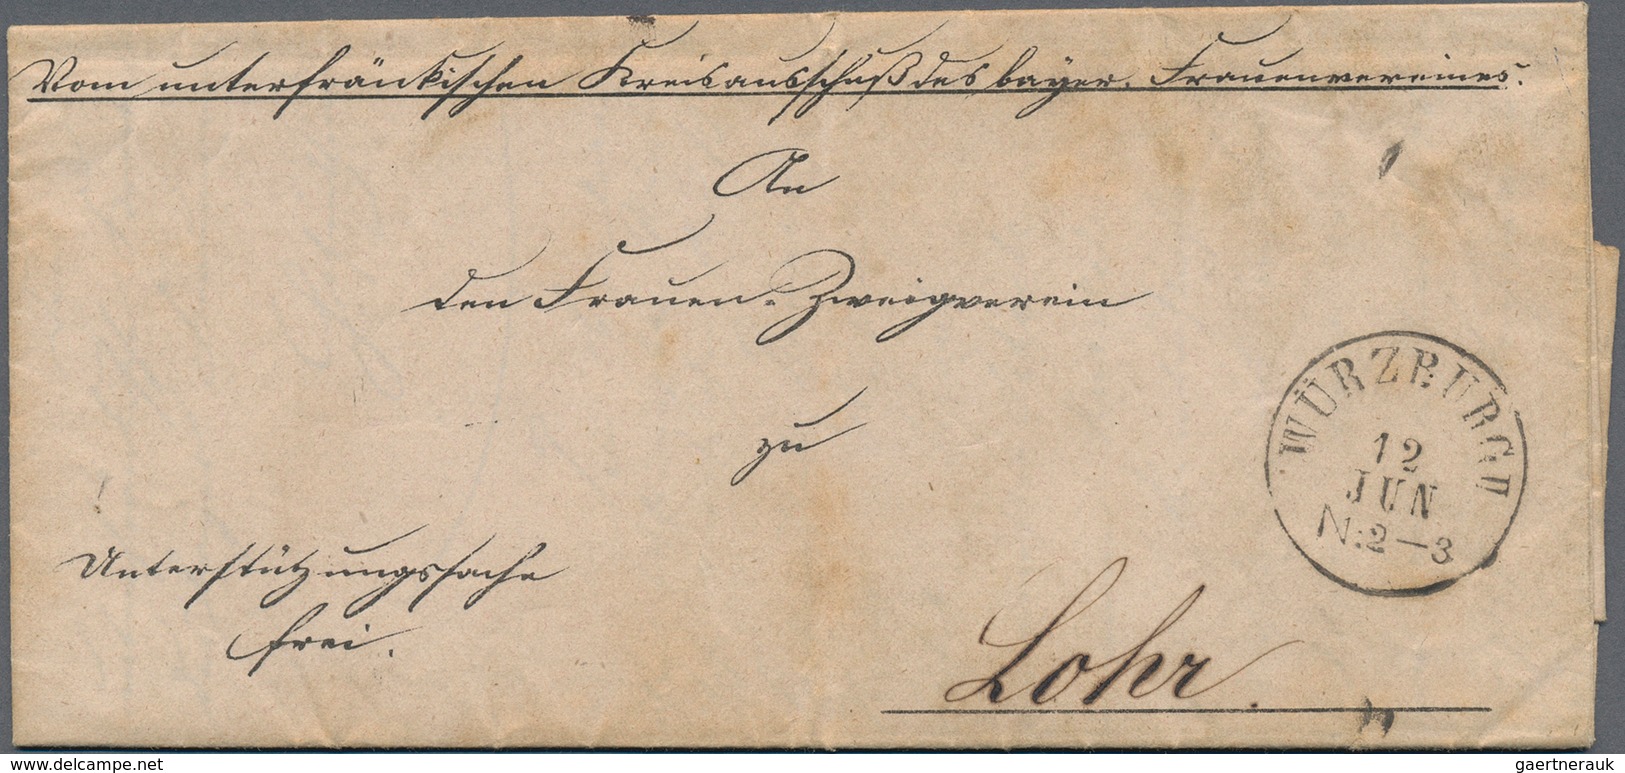 Vom unterfränkischen Kreisausschuß des bayer. Frauenvereines.
An
den Frauen-Zweigverein
zu
WÜRZBURG II
12
JUN
N:2-3
Unterstützungssache
frei.
Lohr.
www.delcampe.net
gaertnerauk